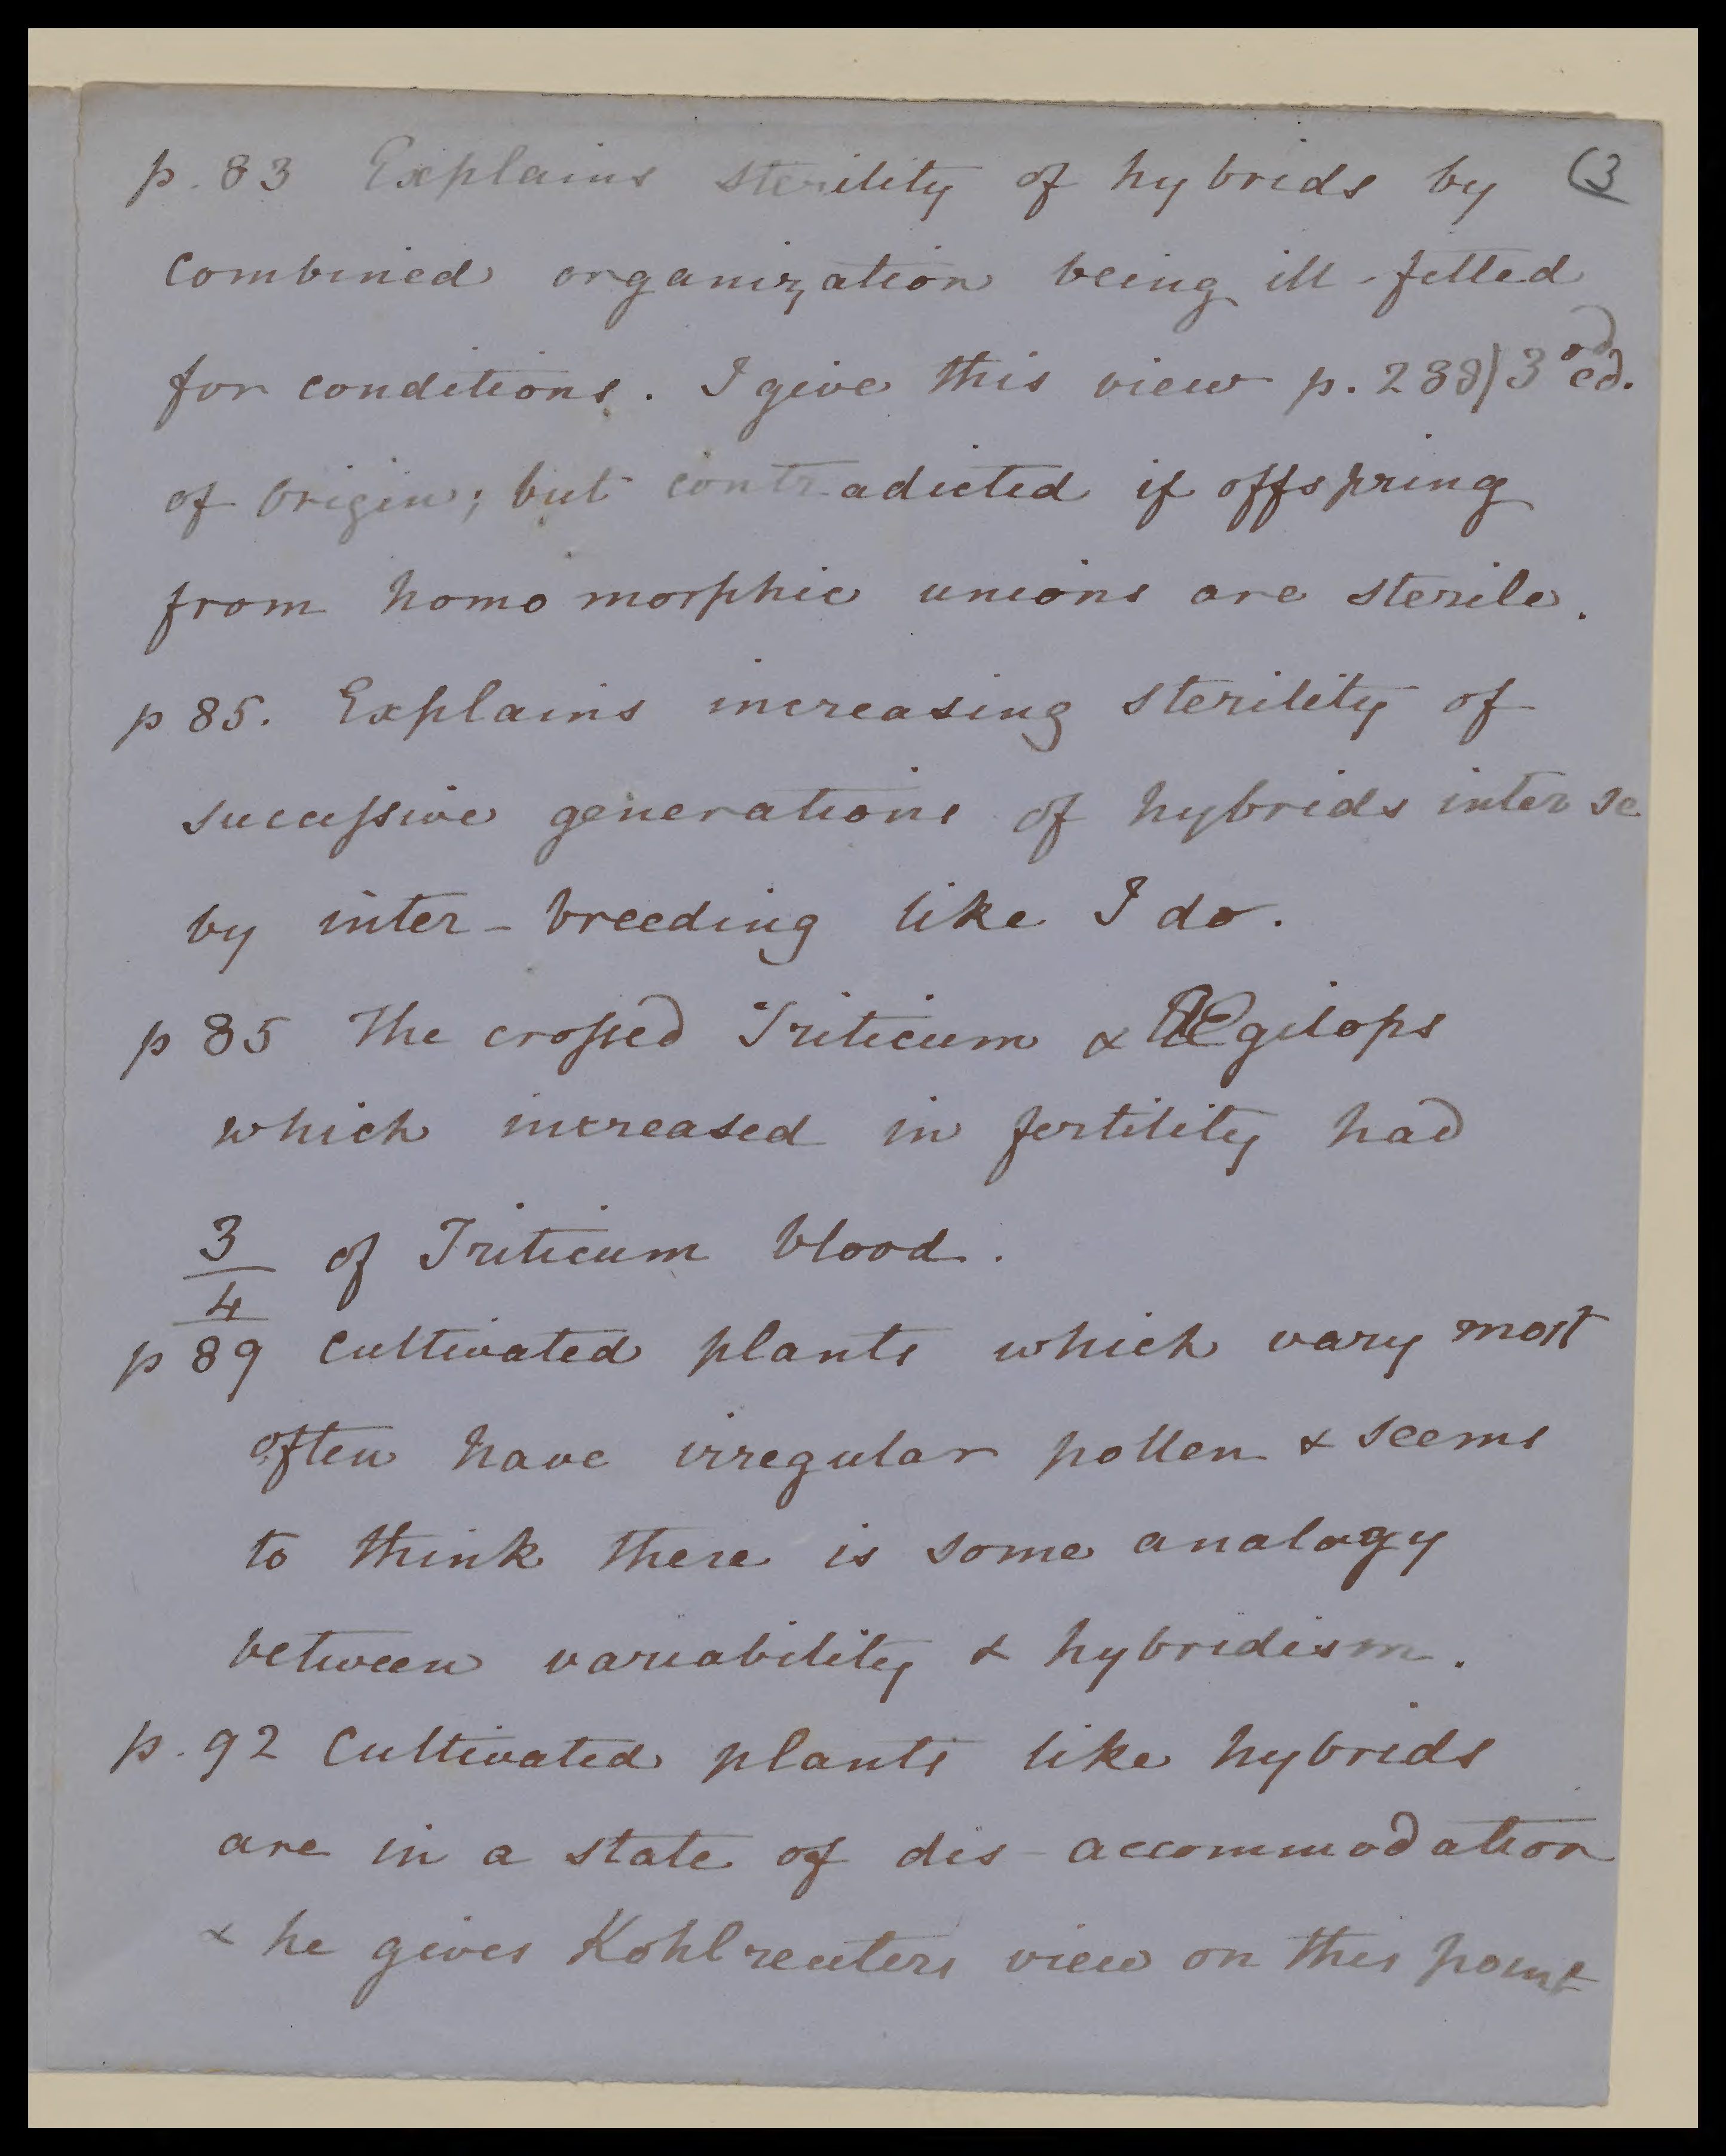 p. 83 Explains sterility of hybrids by (3
combined organization being ill-fitted
for conditions. I give this view p. 288) 3rd ed.
of Origin; but contradicted if offspring
from homo morphic unions are sterile.
p 85. Explains increasing sterility of
successive generations of hybrids inter se
by inter-breeding like I do.
p 85 The crossed Triticum & Ægilops
which increased in fertility had
3/4 of Triticum blood.
p 89 Cultivated plants which vary most
often have irregular pollen & seems
to think there is some analogy
between variability & hybridism.
p. 92 Cultivated plants like hybrids
are in a state of dis-accommodation
& he gives Kohlreuters view on this point